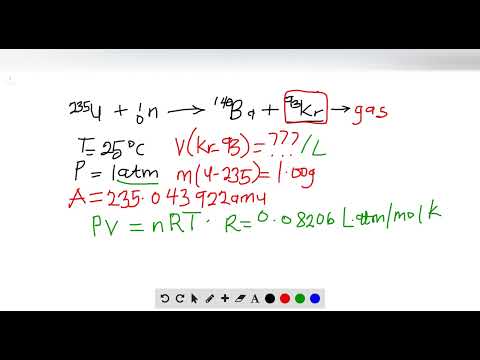 ²³⁵U + ¹₀n → ¹⁴⁰Ba + ⁹³Kr → gas
T = 25°C V(Kr-93) = ???/L
P = 1atm m(U-235) = 1.00g
A = 235.043922amu
PV = nRT. R = 0.08206 L.atm/mol k
A